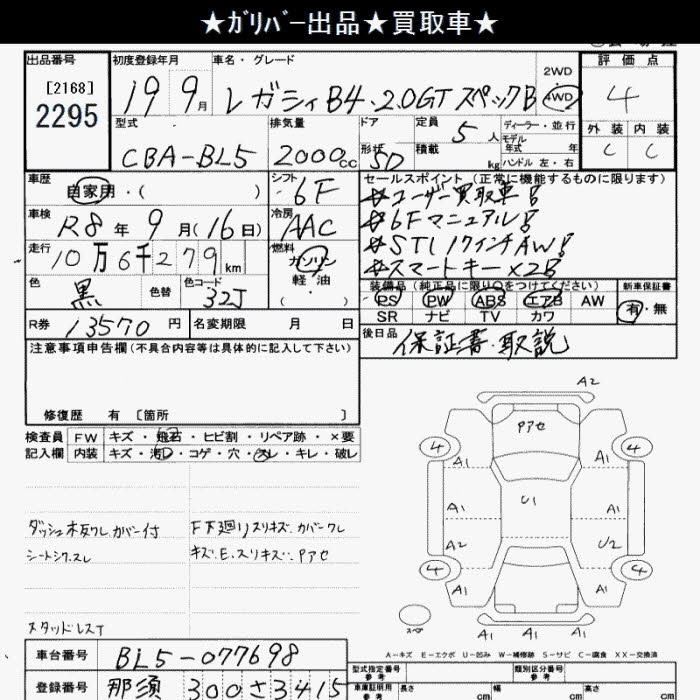 ★ｶﾞﾘﾊﾞｰ出品★買取車★
出品番号 初度登録年月 車名・グレード 2WD 評価点
[2168] 2295 19 9月 レガシィB4・2.0GTスペックB 4WD 4
型式 排気量 ドア 定員 5人 ディーラー・並行 外装 内装
CBA-BL5 2000cc 形状 5D 積載 kg モデル年式 年 C C
ハンドル 左・右
車歴 シフト セールスポイント（正常に機能するものに限ります）
自家用・（ ） 6F ユーザー買取車!
車検 R8年9月(16日) 冷房 AAC 6Fマニュアル!
走行 10万6千279km 燃料 ガソリン STI 17インチAW!
軽油 スマートキー×2
色 黒 色替 色コード 32J ・（ ） 装備品（純正品に限り○をつけてください） 新車保証書
PS PW ABS エアB AW 有・無
SR ナビ TV カワ
R券 13570円 名変期限 月 日 後日品 保証書・取説
注意事項申告欄（不具合内容等は具体的に記入して下さい）
修復歴 有 [箇所 ]
検査員 FW キズ・飛石・ヒビ割・リペア跡・×要
記入欄 内装 キズ・汚レ・コゲ・穴・スレ・キレ・破レ
ダッシュ
カバー付
F下廻リスリキズ カバーワレ
キズ.E.スリキズ. Pアセ
A2
Pアセ
4 4
A1 A1
U1
A1 A1
A2 U2
4 4
A1 A1
スペア
A1 A1 A1
A-キズ E-エクボ U-凹み W-補修跡 S-サビ C-腐食 XX-交換済
車台番号 BL5-077698
型式指定番号 参考 類別区分番号 参考
登録番号 那須 300 さ 3415
車庫証明用 参考 長さ cm 幅 cm 高さ cm